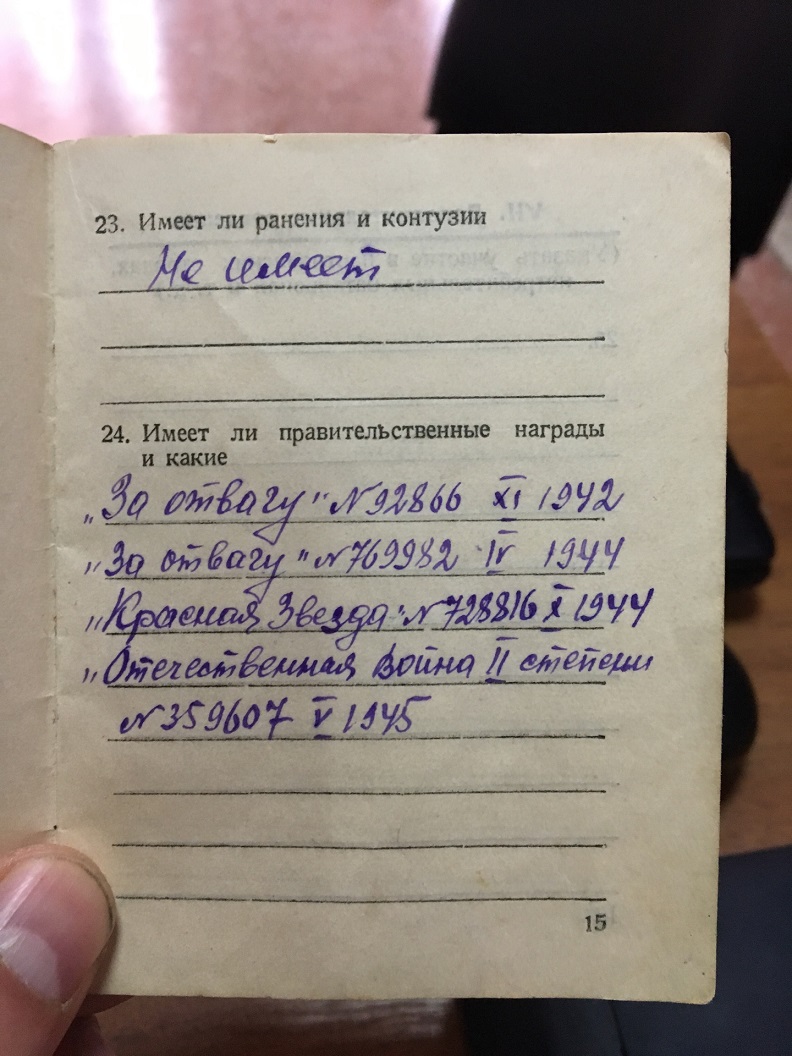 23. Имеет ли ранения и контузии
Не имеет
24. Имеет ли правительственные награды
и какие
„За отвагу" №92866 XI 1942
„За отвагу" №769982 IV 1944
„Красная Звезда" №728816 X 1944
„Отечественная война II степени
№359607 V 1945
15